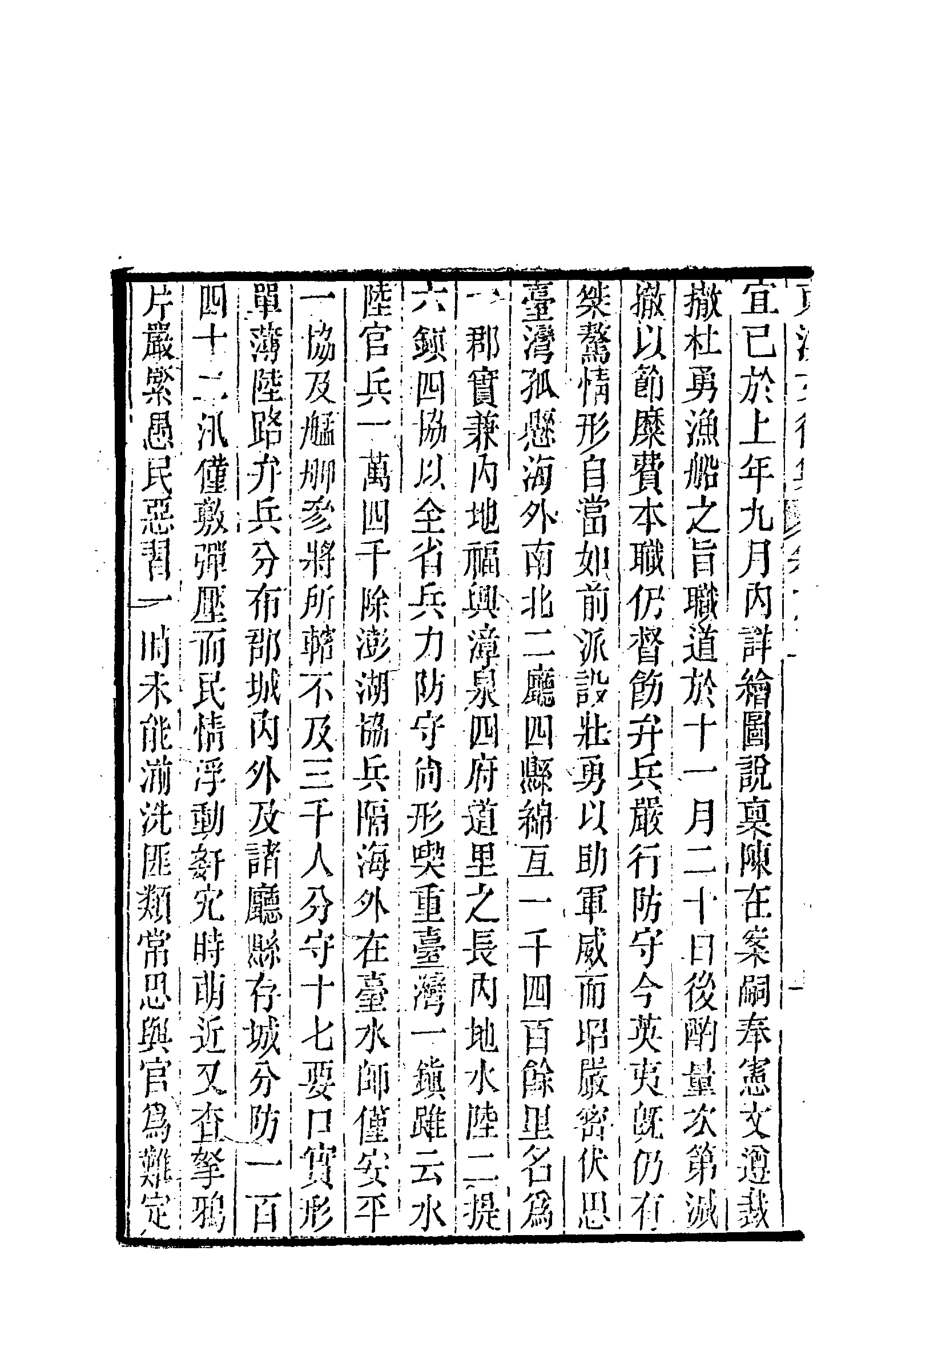 宜已於上年九月內詳繪圖說稟陳在案嗣奉憲文遵裁
撤杜勇漁船之旨職道於十一月二十日後酌量次第減
撤以節糜費本職仍督飭弁兵嚴行防守今英夷旣仍有
桀驁情形自當如前派設壯勇以助軍威而昭嚴密伏思
臺灣孤懸海外南北二廳四縣綿亙一千四百餘里名爲
一郡實兼內地福興漳泉四府道里之長內地水陸二提
六鎮四協以全省兵力防守尙形喫重臺灣一鎮雖云水
陸官兵一萬四千除澎湖協兵隔海外在臺水師僅安平
一協及艋舺參將所轄不及三千人分守十七要口實形
單薄陸路弁兵分布郡城內外及諸廳縣存城分防一百
四十二汛僅敷彈壓而民情浮動奸宄時萌近又查拏鴉
片嚴緊愚民惡習一時未能湔洗匪類常思與官爲難定